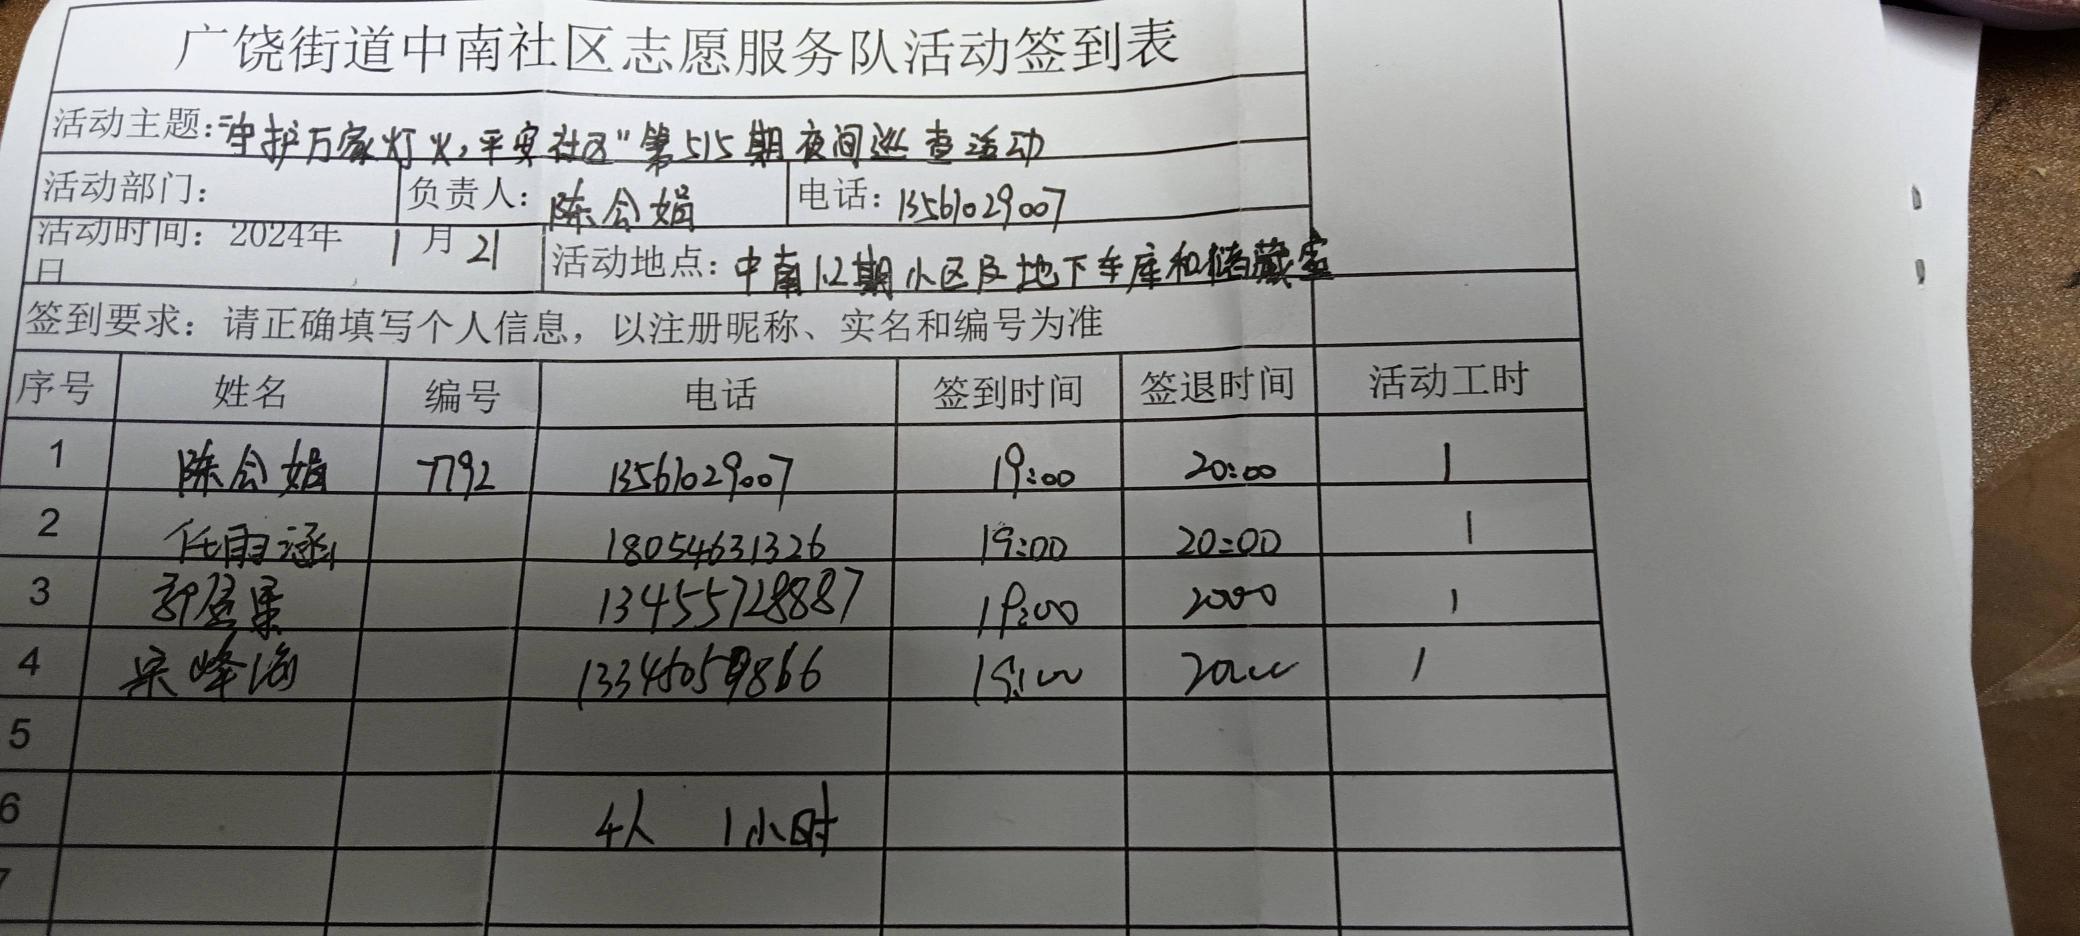 广饶街道中南社区志愿服务队活动签到表
活动主题：“守护万家灯火，平安社区”第515期夜间巡查活动
活动部门： 负责人：陈会娟 电话：13561029007
活动时间：2024年1月21 活动地点：中南1.2期小区及地下车库和储藏室
日
签到要求：请正确填写个人信息，以注册昵称、实名和编号为准
序号 姓名 编号 电话 签到时间 签退时间 活动工时
1 陈会娟 7792 13561029007 19:00 20:00 1
2 任雨涵 18054631326 19:00 20:00 1
3 13455728887 19:00 2000 1
4 宋峰海 19:00 20:00 1
5
6 4人 1小时
7